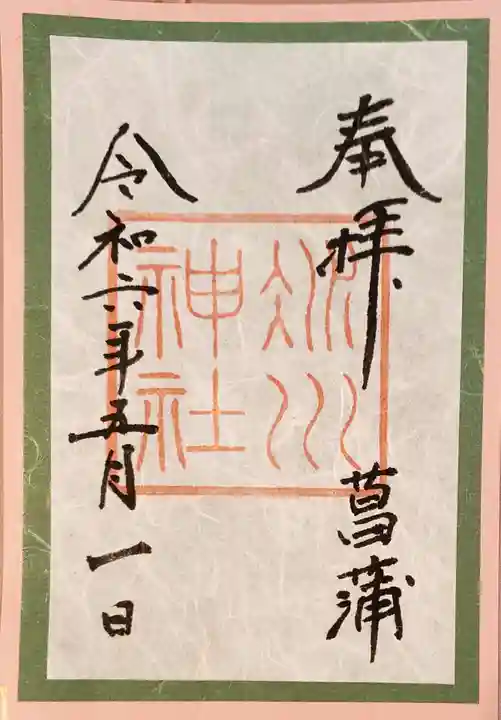 奉拝 菖蒲
川
神社
令和六年五月一日